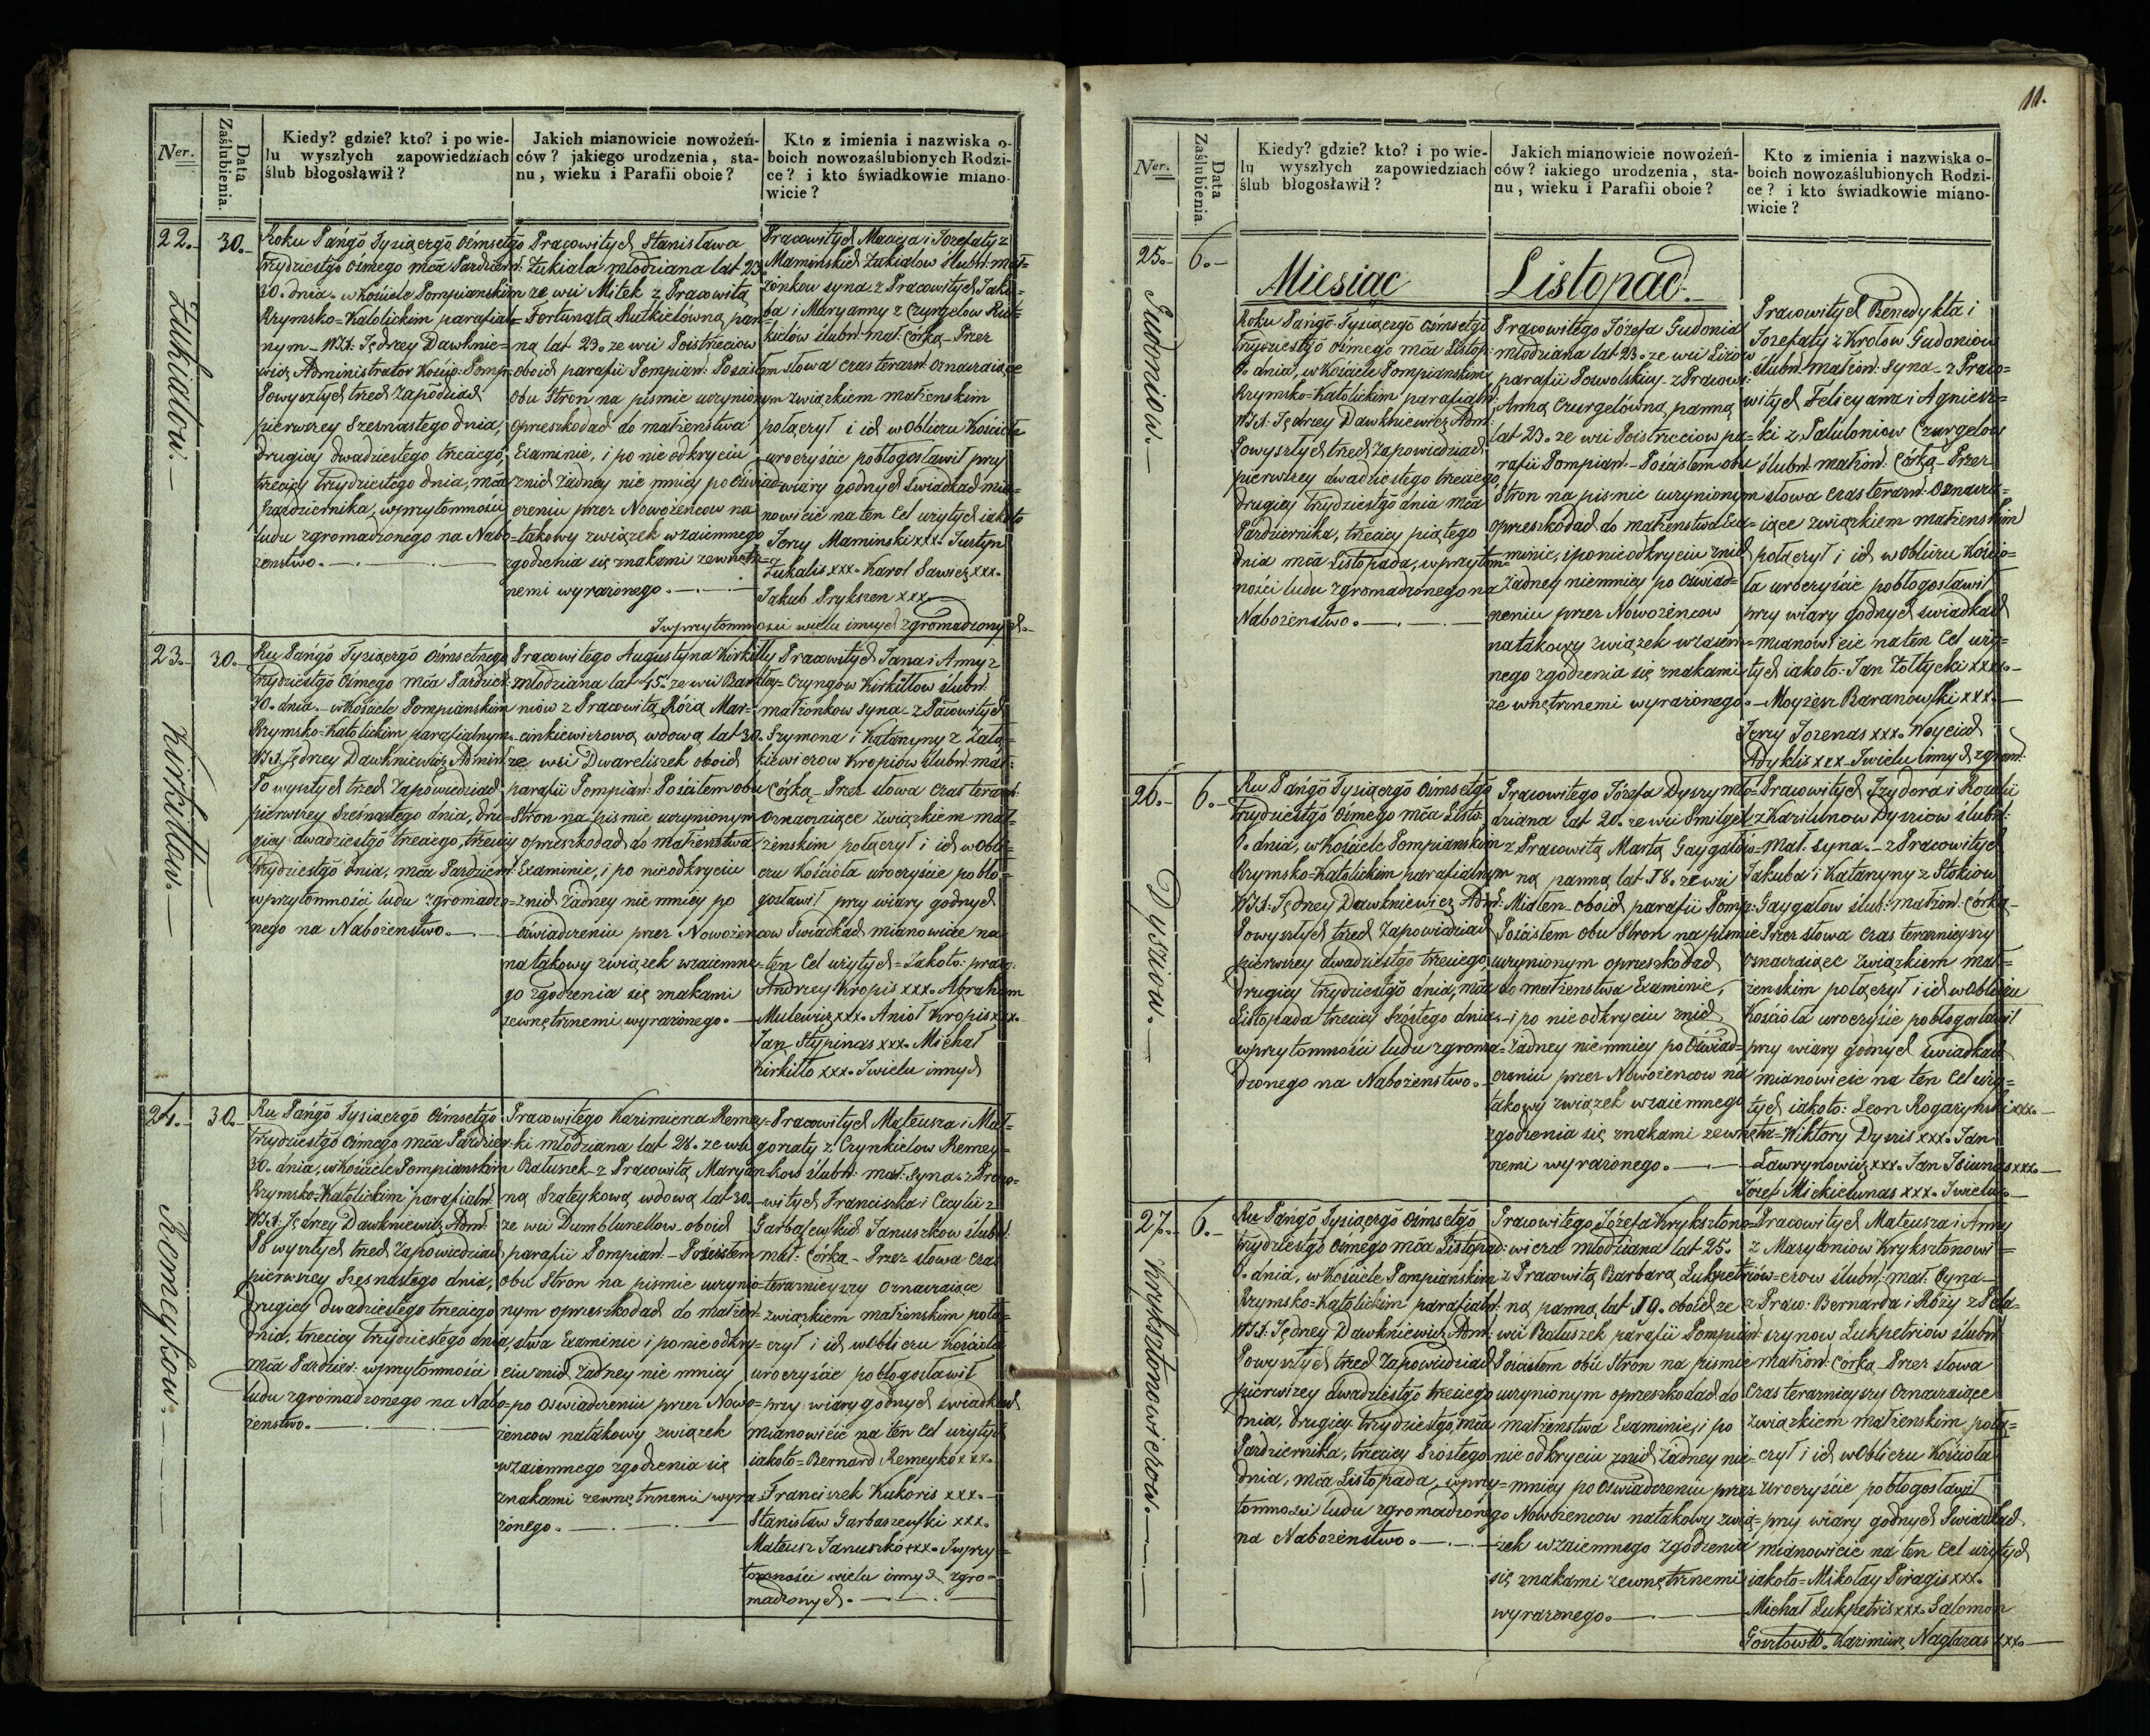 Ner.
Data Zaślubienia.
Kiedy? gdzie? kto? i po wie-
lu wyszłych zapowiedziach
ślub błogosławił?
Jakich mianowicie nowożeń-
ców? jakiego urodzenia, sta-
nu, wieku i Parafii oboie?
Kto z imienia i nazwiska o-
boich nowozaślubionych Rodzi-
ce? i kto świadkowie miano-
wicie?
22.
30.
Żukialow.
Roku Pańgo Tysiącgo Ośmsetgo
trzydziestgo osmego mca Pazdziern:
30. dnia w Kościele Pompianskim
Rzymsko=Katolickim parafial=
nym WJX: Jędrzey Dawknie=
wicz Administrator Kościo: Pomp:
Powyszłych trzech Zapowied
pierwszey Szesnastego dnia,
drugiey dwadziestego trzeciego,
trzeciey trzydziestego dnia, mca
Pazdziernika, wprzytomności
ludu zgromadzonego na Nabo=
zenstwo.
Pracowitych Stanisława
Żukiala młodziana lat 23.
ze wsi Mitek z Pracowitą
Fortunatą Rutkielowną pan=
ną lat 23. ze wsi Poistrzeciow
oboich parafii Pompian: Poscisłem
obu Stron na pismie uczynionym
oprzeszkodach do małżenstwa
Examinie, i po nieodkryciu
znich żadney nie mniey po Oświad=
czeniu przez Nowożencow na
takowy związek wzaiemnego
zgodzenia się znakami zewnętrz=
nemi wyrażonego.
Pracowitych Macieja i Jozefaty z
Maminskich Żukialow ślubn: mał=
żonkow syna z Pracowitych Jaku=
ba i Maryanny z Czurgelow Rut=
kielow ślubn: mał: Córką Przez
słowa czas terazn: oznaczaiące
związkiem małżenskim
połączył i ich w Obliczu Kościoła
uroczyście pobłogosławił przy
wiary godnych świadkach mia=
nowicie na ten Cel użytych iakoto
Jerzy Maminski xxx. Justyn
Żukalis xxx. Karol Sawicz xxx.
Jakub Prykszen xxx.
Iwprzytomności wielu innych zgromadzonych.
23.
30.
Kirkiłłow.
Ru Pańgo Tysiącgo Ośmsetnego
trzydziestgo osmego mca Pazdzier:
30. dnia w Kościele Pompianskim
Rzymsko=Katolickim parafialnym
WJX Jędrzey Dawkniewicz Admin:
Powyszłych trzech Zapowiedziach
pierwszey Szesnastego dnia, dru=
giey dwadziestgo trzeciego, trzeciey
trzydziestgo dnia, mca Pazdziern:
wprzytomności ludu zgromadzo=
nego na Nabożenstwo.
Pracowitego Augustyna Kirkiłły
młodziana lat 45. ze wsi Bartkey=
niow z Pracowitą Rózą Mar=
cinkiewiczową wdową lat 30.
ze wsi Dwareliszek oboich
parafii Pompian: Poscisłem obu
Stron na pismie uczynionym
oprzeszkodach do małżenstwa
Examinie, i po nieodkryciu
znich żadney nie mniey po
oświadczeniu przez Nowożencow
natakowy związek wzaiemne=
go zgodzenia się znakami
zewnętrznemi wyrażonego.
Pracowitych Jana i Anny z
Czyngow Kirkiłłow ślubn:
małżonkow syna z Pracowitych
Szymona i Katarzyny z Zalą=
kiewiczow Kropiow ślubn: mał:
Córką Przez słowa czas terazn:
oznaczaiące związkiem mał=
żenskim połączył i ich w Obli=
czu Kościoła uroczyście pobło=
gosławił przy wiary godnych
Swiadkach mianowicie na
ten Cel użytych Jakoto: prac:
Andrzey Kropis xxx. Abraham
Mulewicz xxx. Anioł Kropis xxx.
Jan Stypinas xxx. Michał
Kirkiłło xxx. Iwielu innych
24.
30.
Remeykow.
Ru Pańgo Tysiącgo Ośmsetgo
trzydziestgo osmego mca Pazdzier:
30. dnia, w Kościele Pompianskim
Rzymsko=Katolickim parafialn:
WJX: Jędrzey Dawkniewicz Adm:
Powyszłych trzech Zapowiedziach
pierwszey Szesnastego dnia,
drugiey Dwadziestego trzeciego
dnia, trzeciey trzydziestego dnia,
mca Pazdzier: wprzytomności
ludu zgromadzonego na Nabo=
żenstwo.
Pracowitego Kazimierza Remey=
ki młodziana lat 28. ze wsi
Bałuszek z Pracowitą Maryan=
ną Szateykową wdową lat 30.
ze wsi Dambluneliow oboich
parafii Pompian: Poscisłem
obu Stron na pismie uczynio=
nym oprzeszkodach do małżen=
stwa Examinie i po nieodkry=
ciu znich żadney nie mniey
po oswiadczeniu przez Nowo=
żencow natakowy związek
wzaiemnego zgodzenia się
znakami zewnętrznemi wyra=
żonego.
Pracowitych Mateusza i Mał=
gorzaty z Czynkielow Remey=
kow ślubn: mał: Syna z Praco=
witych Franciszka i Cecylii z
Garbaszewskich Januszkow ślubn:
mał: Córką Przez słowa czas
teraznieyszy oznaczaiące
związkiem małżenskim połą=
czył i ich w Obliczu Kościoła
uroczyście pobłogosławił
przy wiary godnych swiadkach
mianowicie na ten Cel użytych
iakoto=Bernard Remeyko xxx.
Franciszek Kukoris xxx.
Stanisław Garbaszewski xxx.
Mateusz Januszko xxx. Iwprzy=
tomności wielu innych zgro=
madzonych.
11.
Ner.
Data Zaślubienia.
Kiedy? gdzie? kto? i po wie-
lu wyszłych zapowiedziach
ślub błogosławił?
Jakich mianowicie nowożeń-
ców? iakiego urodzenia, sta-
nu, wieku i Parafii oboie?
Kto z imienia i nazwiska o-
boich nowozaślubionych Rodzi-
ce? i kto świadkowie miano-
wicie?
25.
6.
Gudoniow.
Miesiąc Listopad.
Roku Pańgo Tysiącgo Ośmsetgo
trzydziestgo Osmego mca Listop:
6. dnia, w Kościele Pompianskim
Rzymsko=Katolickim parafialn:
WJX: Jędrzey Dawkniewicz Adm:
Powyszłych trzech Zapowiedziach
pierwszey dwadziestego trzeciego,
drugiey trzydziestgo dnia mca
Pazdziernika, trzeciey piątego
dnia mca Listopada, wprzytom=
ności ludu zgromadzonego na
Nabożenstwo.
Pracowitego Józefa Gudonia
młodziana lat 23. ze wsi Liziow
parafii Poswolskiey z Pracowi:
Anną Czurgelówną panną
lat 23. ze wsi Poistrzeciow pa=
rafii Pompian: Poscisłem obu
Stron na pismie uczynionym
oprzeszkodach do małżenstwa Exa=
minie, i po nieodkryciu znich
żadney niemniey po Oświad=
czeniu przez Nowożencow
natakowy związek wzaiem=
nego zgodzenia się znakami
zewnętrznemi wyrażonego.
Pracowitych Benedykta i
Jozefaty z Krolow Gudoniow
ślubn: małżon: syna z Praco=
witych Felicyana i Agniesz=
ki z Paluloniow Czurgelow
ślubn: małżon: Córką Przez
słowa czas terazn: Oznacza=
iące związkiem małżenskim
połączył i ich w Obliczu Kościo=
ła uroczyście pobłogosławił
przy wiary godnych świadkach
mianowicie na ten Cel uży=
tych iakoto: Jan Zołtycki xxx.
Moyżesz Baranowski xxx.
Jerzy Jozenas xxx. Woyciech
Adyklis xxx Iwielu innych zgrom:
26.
6.
Dysziow.
Ru Pańgo Tysiącgo Ośmsetgo
trzydziestgo Osmego mca Listo:
6. dnia, w Kościele Pompianskim
Rzymsko=Katolickim parafialnym
WJX: Jędrzey Dawkniewicz Adm:
Powyszłych trzech Zapowiedziach
pierwszey dwadziestgo trzeciego,
drugiey trzydziestgo dnia, mca
Listopada trzeciey Szóstego dnia
wprzytomności ludu zgroma=
dzonego na Nabożenstwo.
Pracowitego Józefa Dyszy mło=
dziana lat 20. ze wsi Smilgel
z Pracowitą Martą Gaygalów=
ną panną lat 18. ze wsi
Misten oboich parafii Pomp:
Poscisłem obu Stron na pismie
uczynionym oprzeszkodach
do małżenstwa Examinie,
i po nieodkryciu znich
żadney niemniey po Oświad=
czeniu przez Nowożencow na
takowy związek wzaiemnego
zgodzenia się znakami zewnętrz=
nemi wyrażonego.
Pracowitych Izydora i Rozalii
z Karilunow Dysziow ślubn:
Mał. Syna. z Pracowitych
Jakuba i Katarzyny z Stokiow
Gaygalow ślub: małżon: Córką
Przez słowa czas teraznieyszy
oznaczaiące związkiem mał=
żenskim połączył i ich w Obliczu
Kościoła uroczyście pobłogosławił
przy wiary godnych świadkach
mianowicie na ten Cel uży=
tych iakoto: Leon Rogarzynski xxx.
Wiktory Dyszis xxx. Jan
Ławrynowicz xxx. Jan Isiunas xxx.
Józef Mickielunas xxx. Iwielu
27.
6.
Kryksztonowiczow.
Ru Pańgo Tysiącgo Ośmsetgo
trzydziestgo Osmego mca Listopad:
6. dnia, w Kościele Pompianskim
Rzymsko=Katolickim parafialn:
WJX: Jędrzey Dawkniewicz Adm:
Powyszłych trzech Zapowiedziach
pierwszey dwadziestgo trzeciego
dnia, drugiey trzydziestgo, mca
Pazdziernika, trzeciey Szóstego
dnia, mca Listopada, wprzy=
tomności ludu zgromadzonego
na Nabożenstwo.
Pracowitego Józefa Krykszto­no=
wicza młodziana lat 25.
z Pracowitą Barbarą Lukpetriów=
ną panną lat 19. oboich ze
wsi Bałuszek parafii Pompian:
Poscisłem obu Stron na pismie
uczynionym oprzeszkodach do
małżenstwa Examinie, i po
nieodkryciu znich żadney nie=
mniey po oswiadczeniu przez
Nowożencow natakowy zwią=
zek wzaiemnego zgodzenia
się znakami zewnętrznemi
wyrażonego.
Pracowitych Mateusza i Anny
z Masytoniow Krykszto­nowi=
czow ślubn: mał: Syna
z Praw: Bernarda i Róży z Pola=
szynow Lukpetriow ślubn:
małżon: Córką Przez słowa
czas teraznieyszy Oznaczaiące
związkiem małżenskim połą=
czył i ich w Obliczu Kościoła
uroczyście pobłogosławił
przy wiary godnych Swiadkach
mianowicie na ten Cel użytych
iakoto=Mikołay Piragis xxx.
Michał Lukpetris xxx. Salomon
Goszlowtt. Kazimierz Naglazas xxx.